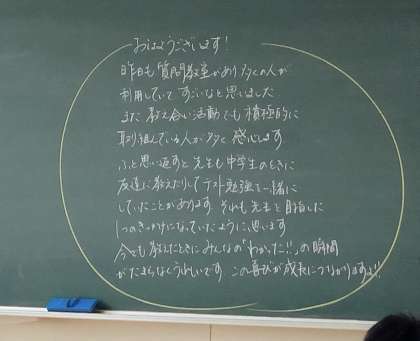 おはようございます！
昨日も質問教室があり多くの人が
利用していて すごいなと思いました
また 教え合い活動でも積極的に
取り組んでいる人が多く 感心します
ふと思い返すと 先生も中学生のときに
友達に教えたりしてテスト勉強を一緒に
していたことがあります。それも先生を目指した
1つのきっかけになっていたように思います
今でも教えたときにみんなの「わかった!!」の瞬間
がたまらなくうれしいです。この喜びが成長につながりますよ!!